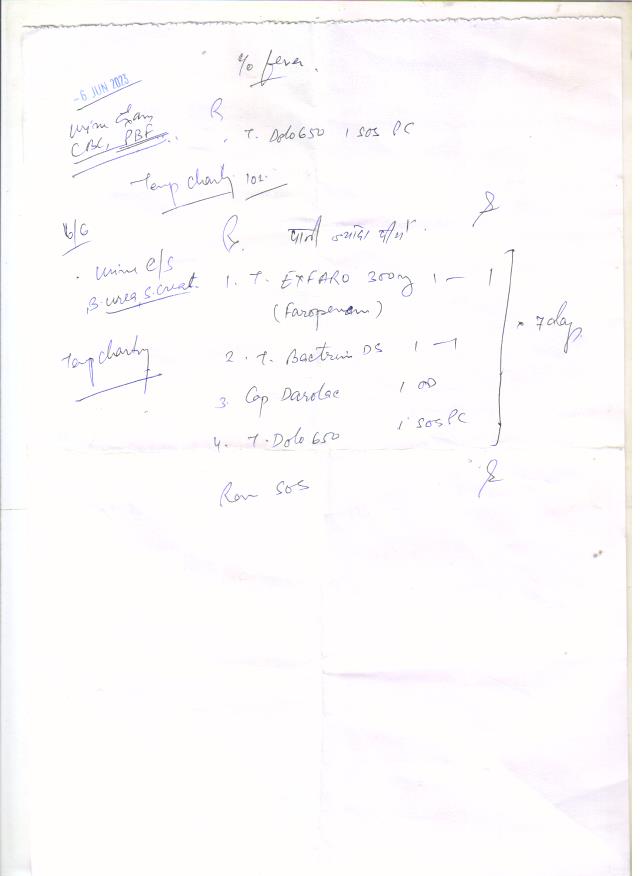 c/o fever.
- 6 JUN 2023
Urine Exam
CBC, PBF
R
. T. Dolo 650 1 SOS PC
Temp charting 101
6/6
Rx. पानी ज्यादा पीयें.
. Urine C/S
B. urea, S. Creat.
1. T. EXFARO 300mg 1 — 1
(Faropenem)
x 7 days
Temp charting
2. T. Bactrim DS 1 — 1
3. Cap Darolac 1 OD
4. T. Dolo 650 1 SOS PC
Rev SOS